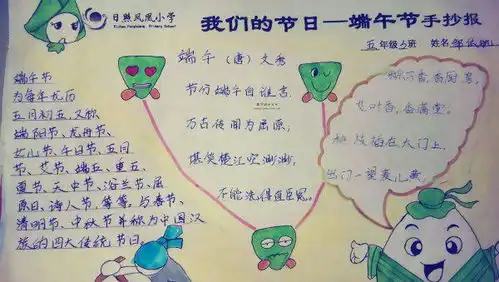 日照凤凰小学
我们的节日—端午节手抄报
五年级3班 姓名:
端午节
为每年农历
五月初五,又称
端阳节、龙舟节、
女儿节、午日节、五月
节、艾节、端五、重五、
夏节、天中节、浴兰节、屈
原日、诗人节、等等。与春节、
清明节、中秋节并称为中国汉
族的四大传统节日。
端午(唐)文秀
节分端午自谁言,
万古传闻为屈原;
堪笑楚江空渺渺,
不能洗得直臣冤。
艾叶香,香满堂。
插在大门上,
出门一望麦儿黄。